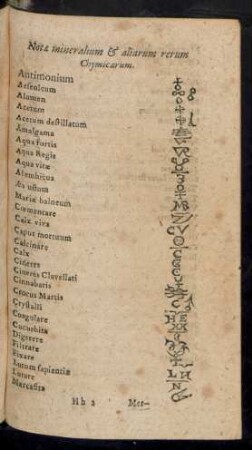 Notæ mineralium & aliarum rerum
Chymicarum.
Antimonium
Arsenicum
Alumen
Acetum
Acetum destillatum
Amalgama
Aqua fortis
Aqua Regis
Aqua vitæ
Alembicus
Æs ustum
Mariæ balneum
MB
Cæmentare
Calx viva
Caput mortuum
Calcinare
Calx
Cineres
Cineres Clevellati
Cinnabaris
Crocus Martis
Crystalli
Coagulare
Cucurbita
Digerere
Filtrare
Fixare
Lutum sapientiæ
Lutare
Marcasita
H h 2 Mer-